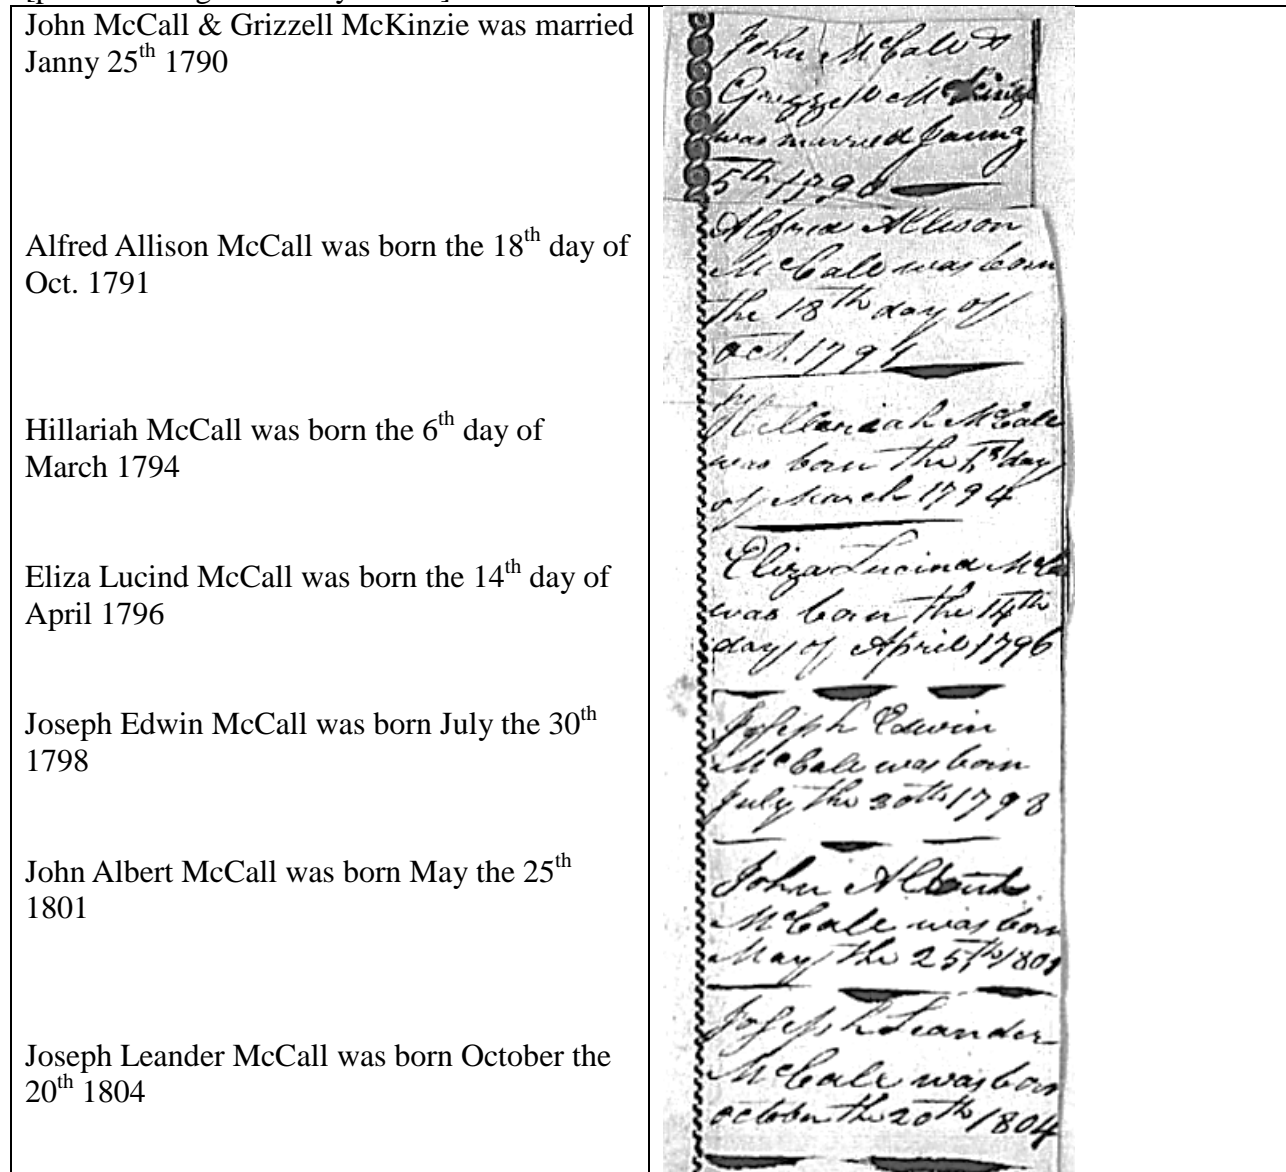 John McCall & Grizzell McKinzie was married
Janny 25th 1790
Alfred Allison McCall was born the 18th day of
Oct. 1791
Hillariah McCall was born the 6th day of
March 1794
Eliza Lucind McCall was born the 14th day of
April 1796
Joseph Edwin McCall was born July the 30th
1798
John Albert McCall was born May the 25th
1801
Joseph Leander McCall was born October the
20th 1804
John McCall &
Grizzell
was married Janny
5th 1790
Alfred Allison
McCall was born
the 18th day of
oct. 1791
Hillariah McCall
was born the day
of March 1794
Eliza Lucind McCa
was born the 14th
day of April 1796
Joseph Edwin
McCall was born
July the 30th 1798
John Albert
McCall was born
May the 25th 1801
Joseph Leander
McCall was born
october the 20th 1804